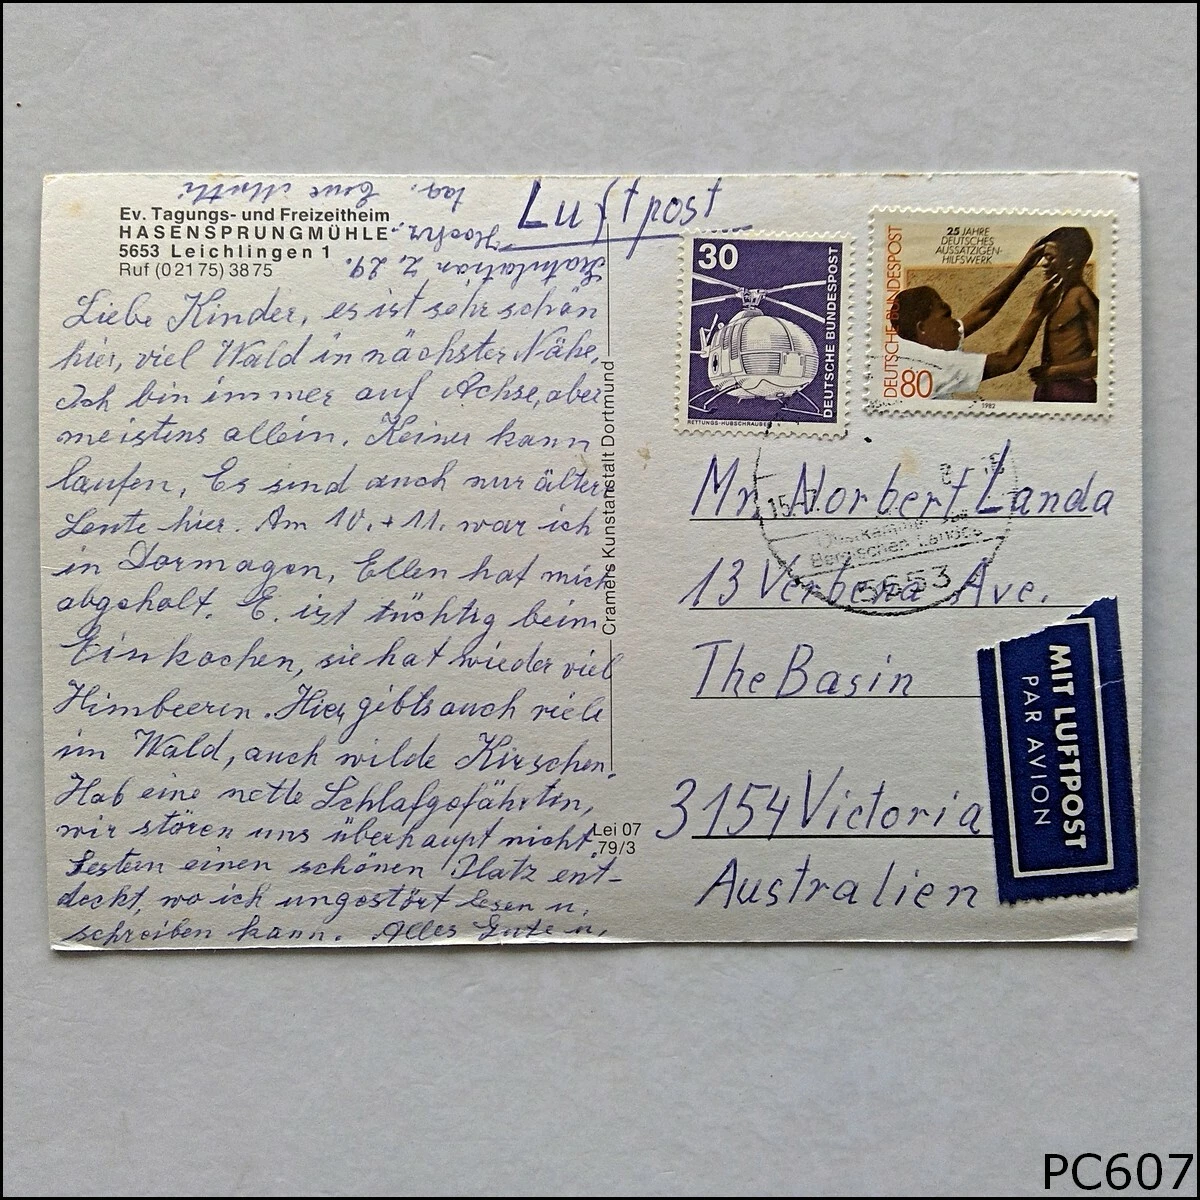 Ev. Tagungs- und Freizeitheim
HASENSPRUNGMÜHLE
5653 Leichlingen 1
Ruf (02175) 3875
Liebe Kinder, es ist sehr schön
hier, viel Wald in nächster Nähe.
Ich bin immer auf Achse, aber
meistens allein. Keiner kann
laufen. Es sind auch nur ältere
Leute hier. Am 10. + 11. war ich
in Dormagen, Ellen hat mich
abgeholt. E. ist tüchtig beim
Einkochen, sie hat wieder viel
Himbeeren. Hier gibts auch viele
im Wald, auch wilde Kirschen.
Hab eine nette Schlafgefährtin,
wir stören uns überhaupt nicht.
Gestern einen schönen Platz ent-
deckt, wo ich ungestört lesen u.
schreiben kann. Alles Gute u.
Gratulation z. 29.
Hochz.
tag. Eure Mutti
Cramers Kunstanstalt Dortmund
Lei 07
79/3
Luftpost
30
DEUTSCHE BUNDESPOST
RETTUNGS-HUBSCHRAUBER
25 JAHRE
DEUTSCHES
AUSSÄTZIGEN-
HILFSWERK
DEUTSCHE BUNDESPOST
80
1982
15.-7.
Bergischen Landes
5653
Mr. Norbert Landa
13 Verbena Ave.
The Basin
3154 Victoria
Australien
MIT LUFTPOST
PAR AVION
PC607